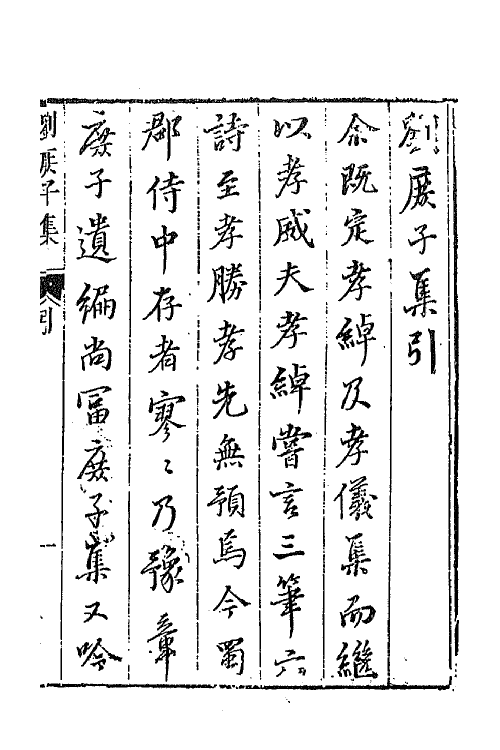 劉庶子集引
余既定孝綽及孝儀集而繼
以孝威夫孝綽嘗言三筆六
詩至孝勝孝先無預焉今蜀
郡侍中存者寥〻乃豫章
庶子遺編尚冨庶子集又吟
劉庶子集 引 一